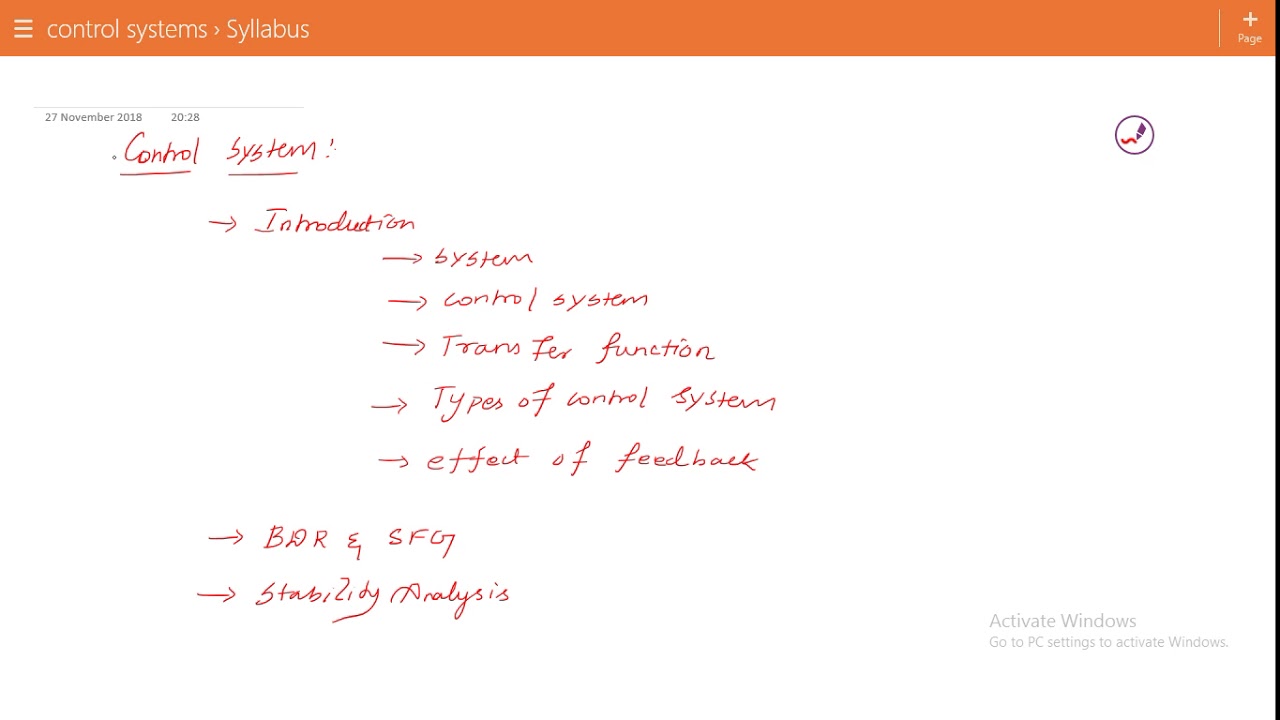 control systems › Syllabus
Page
27 November 2018 20:28
Control System:
→ Introduction
→ System
→ control system
→ Transfer function
→ Types of control system
→ effect of feedback
→ BDR & SFG
→ Stability Analysis
Activate Windows
Go to PC settings to activate Windows.